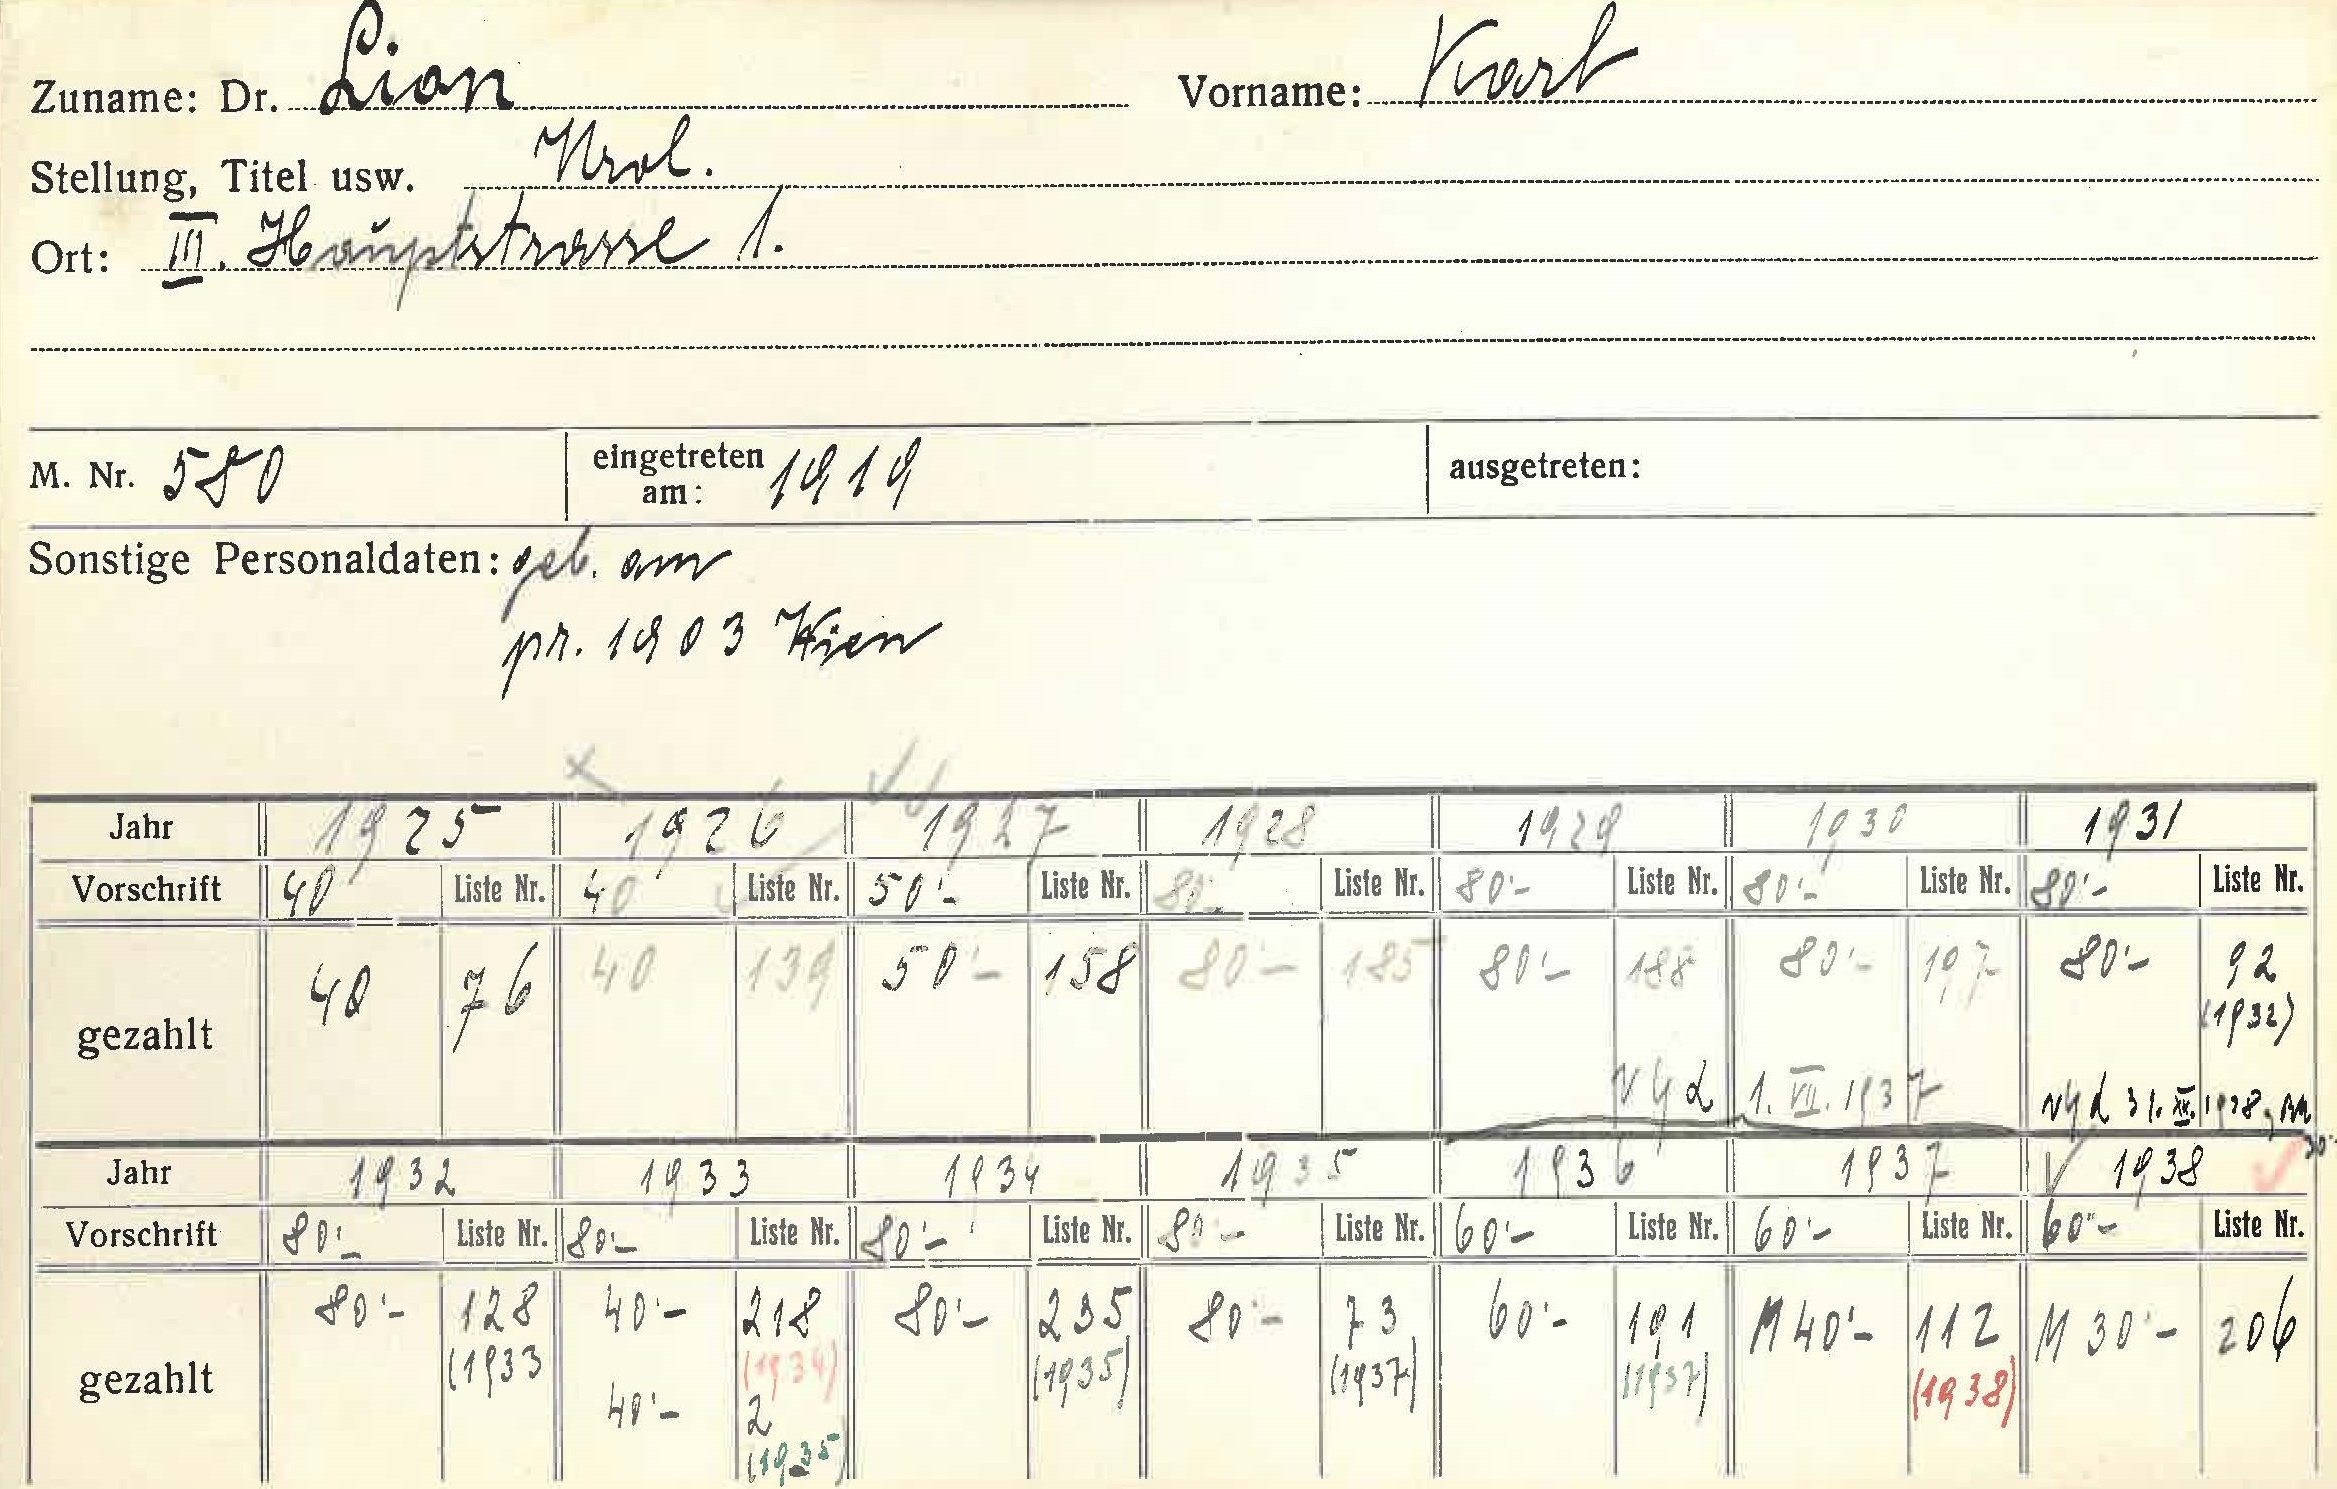 Zuname: Dr. Lion Vorname: Karl
Stellung, Titel usw. Urol.
Ort: III. Hauptstrasse 1.
M. Nr. 580 eingetreten am: 1919 ausgetreten:
Sonstige Personaldaten: geb. am
pr. 1903 Wien
Jahr 1925 1926 1927 1928 1929 1930 1931
Vorschrift 40 Liste Nr. 40 Liste Nr. 50'- Liste Nr. 80'- Liste Nr. 80'- Liste Nr. 80'- Liste Nr. 80'- Liste Nr.
gezahlt 40 76 40 139 50'- 158 80'- 185 80'- 188 80'- 197 80'- 92
(1932)
1. VII. 1937 31. XII. 1938
Jahr 1932 1933 1934 1935 1936 1937 1938
Vorschrift 80'- Liste Nr. 80'- Liste Nr. 80'- Liste Nr. 80'- Liste Nr. 60'- Liste Nr. 60'- Liste Nr. 60'- Liste Nr.
gezahlt 80'- 128 40'- 218 80'- 235 80'- 73 60'- 191 M 40'- 112 M 30'- 206
(1933 (1934) (1935) (1937) (1937) (1938)
40'- 2
(1935)